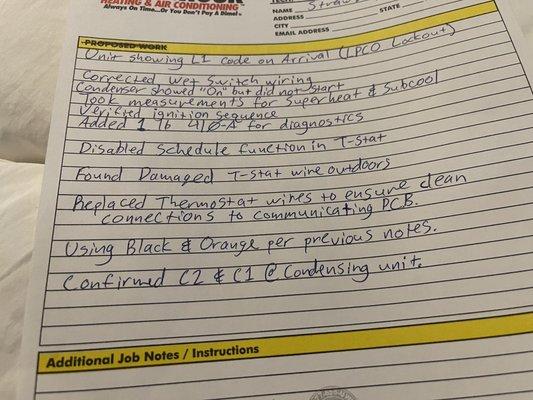 HEATING & AIR CONDITIONING
Always On Time...Or You Don't Pay A Dime!
NAME
ADDRESS
CITY
STATE
EMAIL ADDRESS
PROPOSED WORK
Unit showing L1 code on Arrival (LPCO Lockout)
Corrected wet switch wiring
Condenser showed "On" but did not start
Took measurements for Superheat & Subcool
Verified ignition sequence
Added 1 lb 410-A for diagnostics
Disabled schedule function in T-stat
Found Damaged T-stat wire outdoors
Replaced Thermostat wires to ensure clean
connections to communicating PCB.
Using Black & Orange per previous notes.
Confirmed C2 & C1 @ Condensing unit.
Additional Job Notes / Instructions